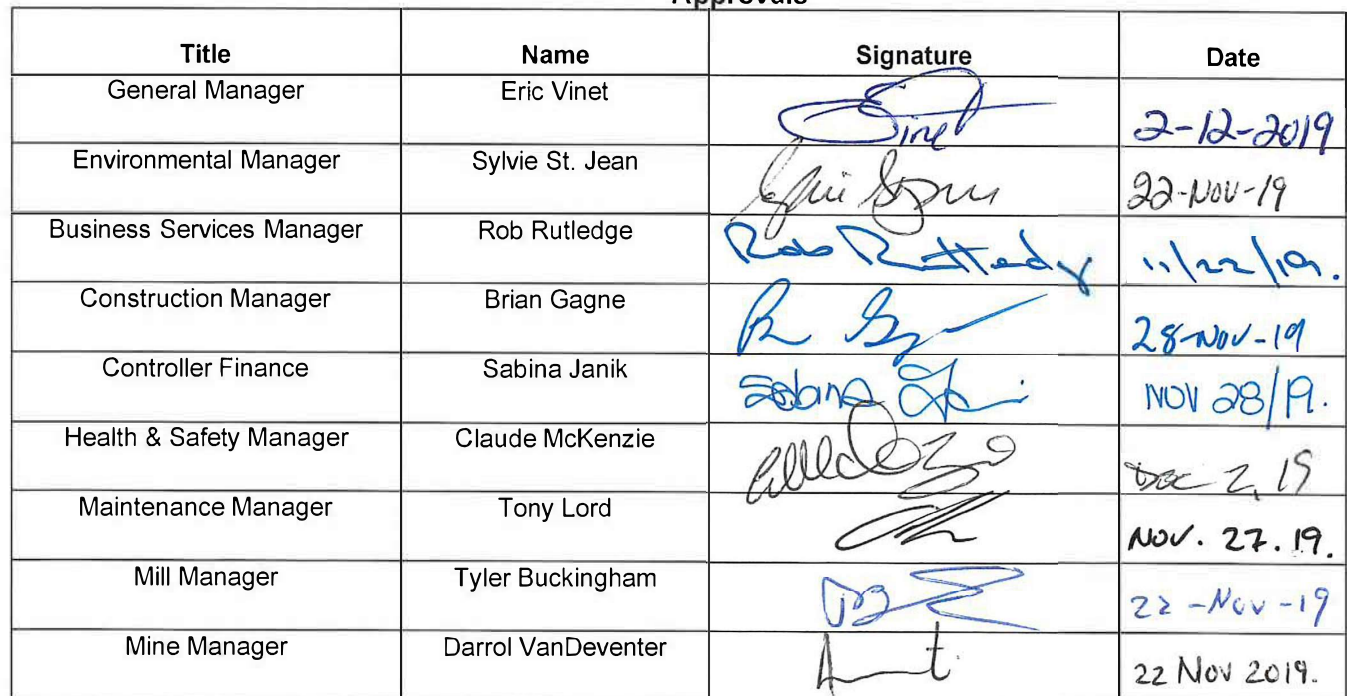 Approvals
Title Name Signature Date
General Manager Eric Vinet Vinet 2-12-2019
Environmental Manager Sylvie St. Jean 22-NOV-19
Business Services Manager Rob Rutledge Rob Rutledge 11/22/19.
Construction Manager Brian Gagne 28-NOV-19
Controller Finance Sabina Janik Sabina NOV 28/19.
Health & Safety Manager Claude McKenzie DEC 2, 19
Maintenance Manager Tony Lord NOV. 27. 19.
Mill Manager Tyler Buckingham 22-Nov-19
Mine Manager Darrol VanDeventer 22 Nov 2019.